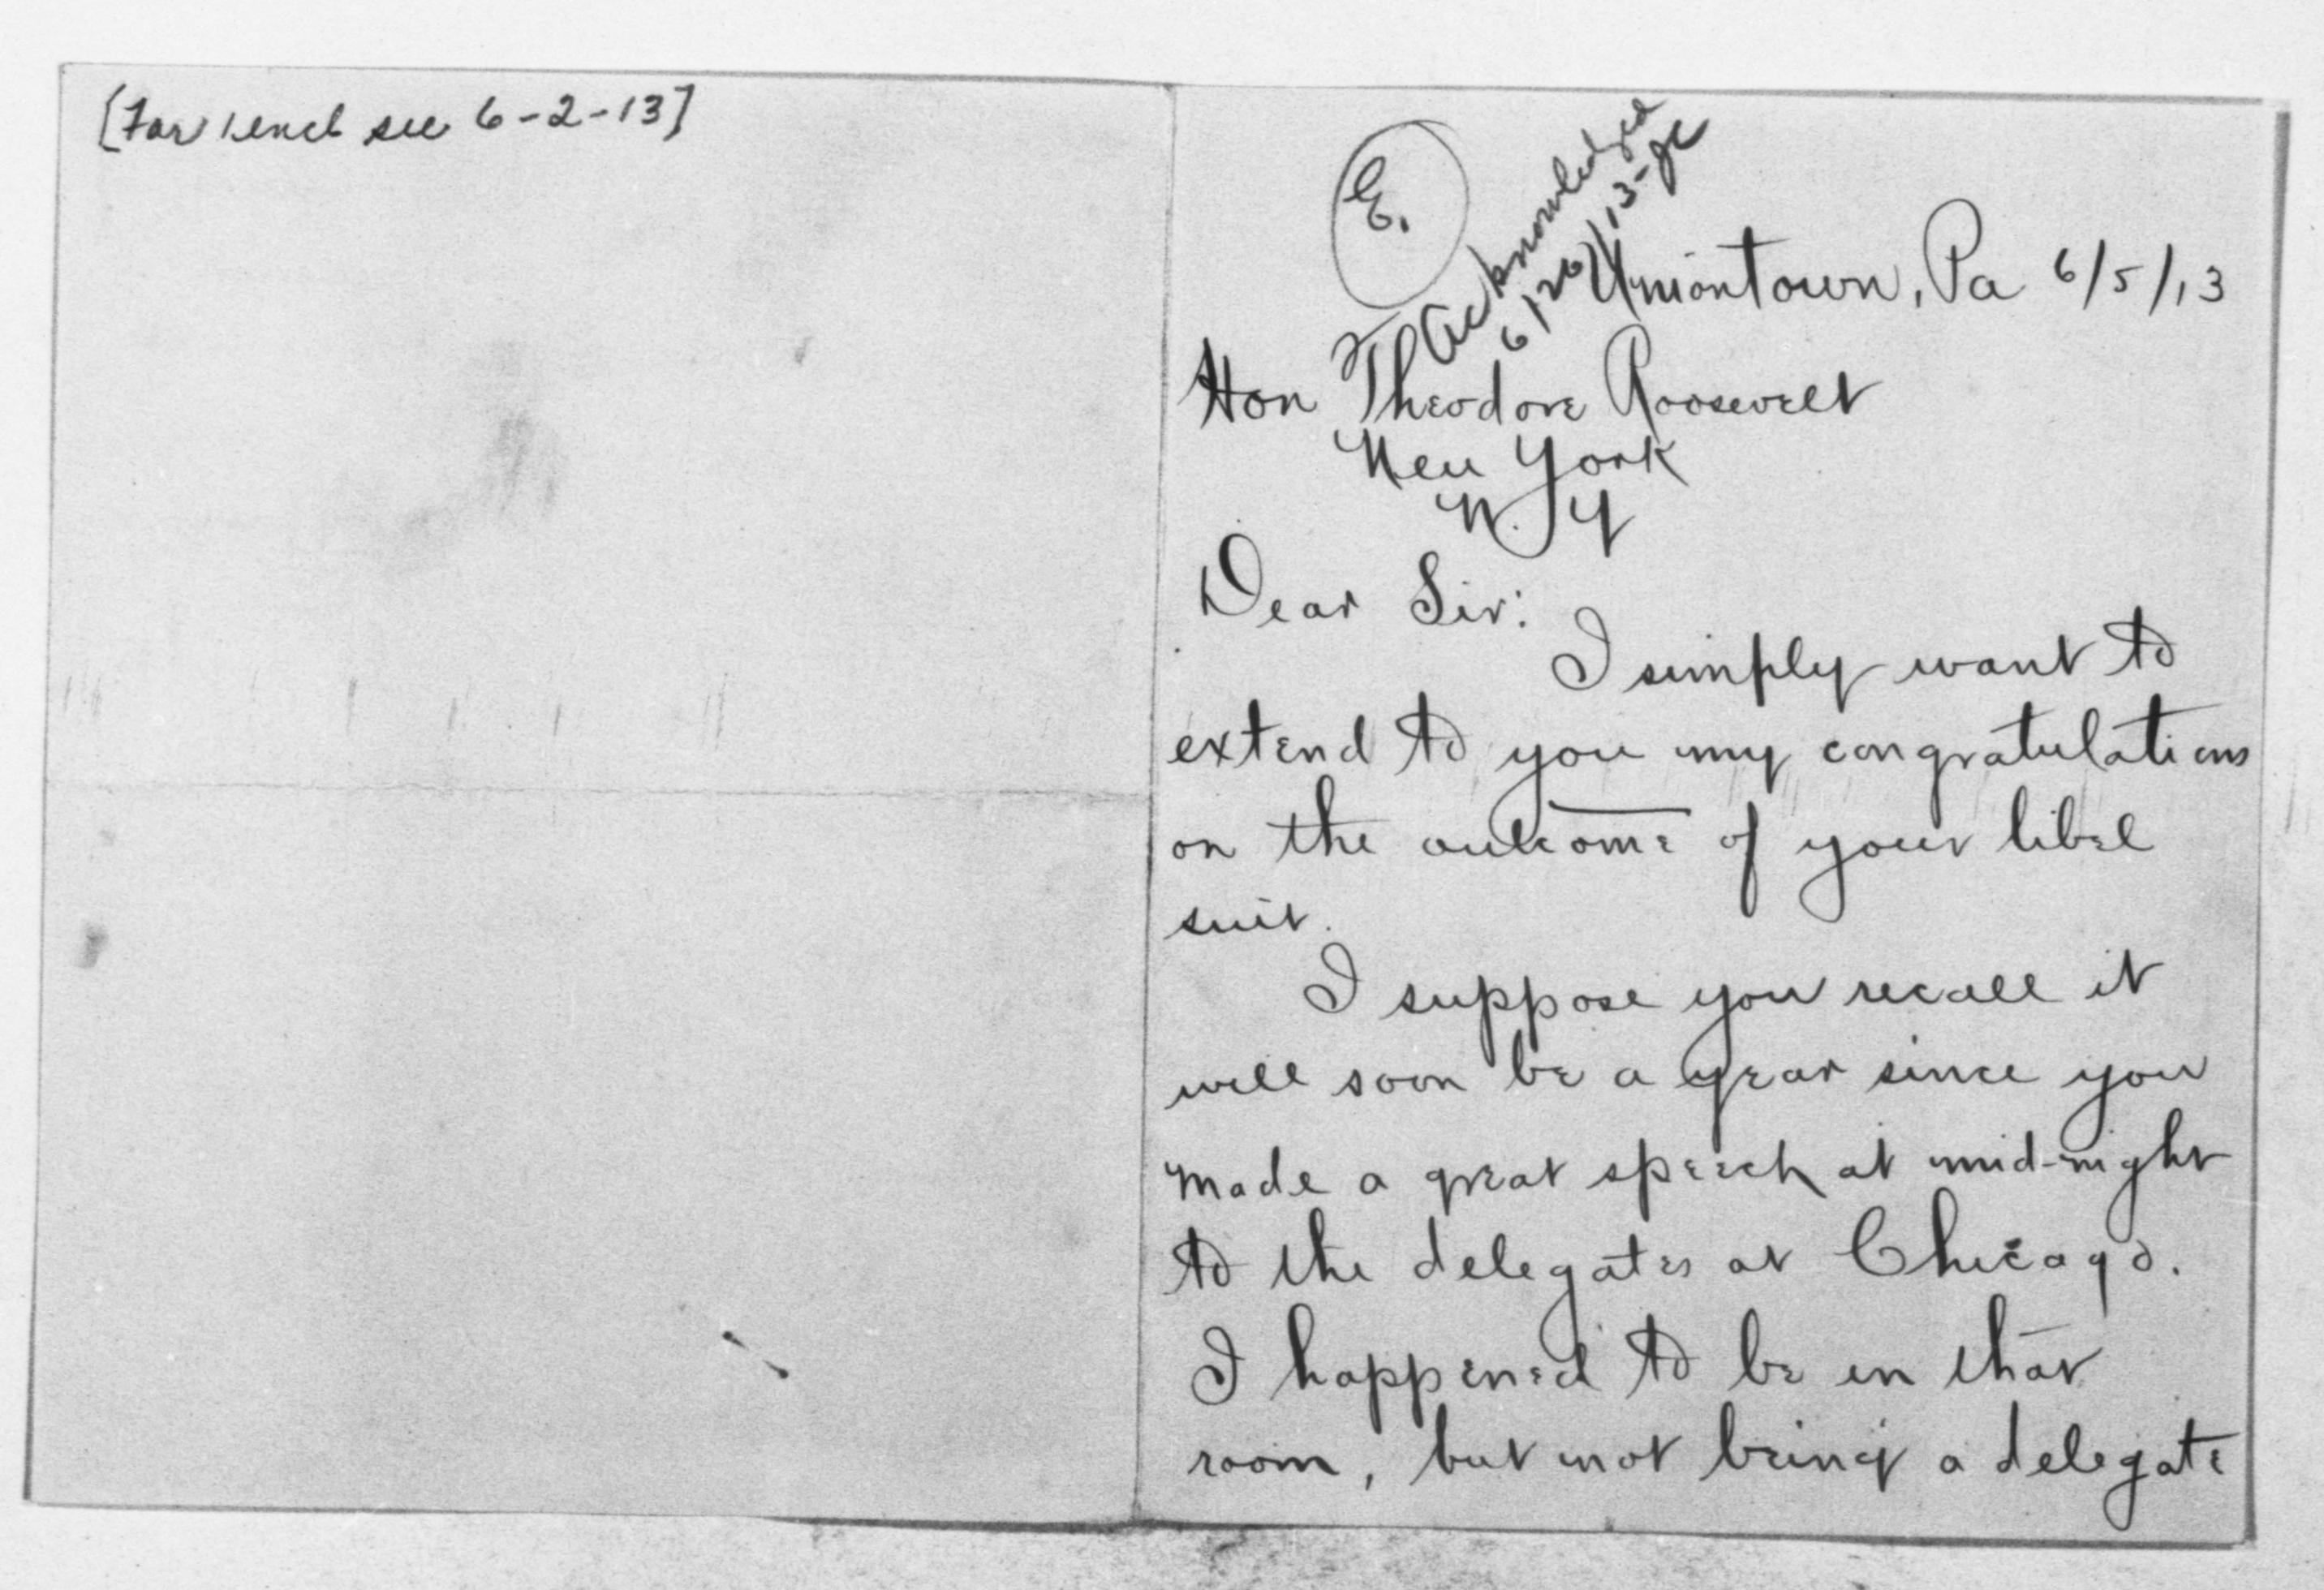 [For 1 encl see 6-2-13]
E.
Acknowledged
6/26/13-
Uniontown, Pa 6/5/13
Hon Theodore Roosevelt
New York
N. Y
Dear Sir:
I simply want to
extend to you my congratulations
on the outcome of your libel
suit.
I suppose you recall it
will soon be a year since you
made a great speech at mid-night
to the delegates at Chicago.
I happened to be in that
room, but not being a delegate